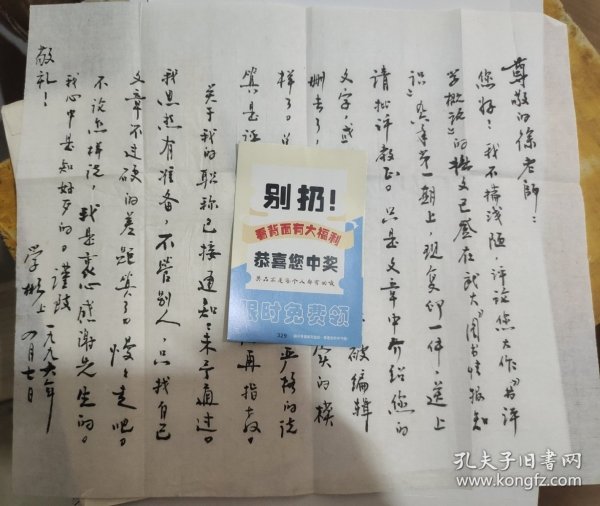 尊敬的徐老师：
您好！我不揣浅陋，评论您大作《书评
学概论》的拙文已登在武大《图书情报知
识》九六年第一期上，现复印一件，送上
请批评教正。只是文章中介绍您的
文字，
被编辑
删去了，
实的模
样了。
严格的说
真是
再指教。
关于我的职称已接通知：未予通过。
我思想有准备，不管别人，只找自己
文章不过硬的差距算了。慢慢走吧。
不论怎样说，我是衷心感谢先生的。
我心中是知好歹的。谨致
敬礼！
学彬上
一九九六年
四月七日
别扔！
看背面有大福利
恭喜您中奖
奖品不是每个人都有的哦
限时免费领
孔夫子旧书网
www.kongfz.com